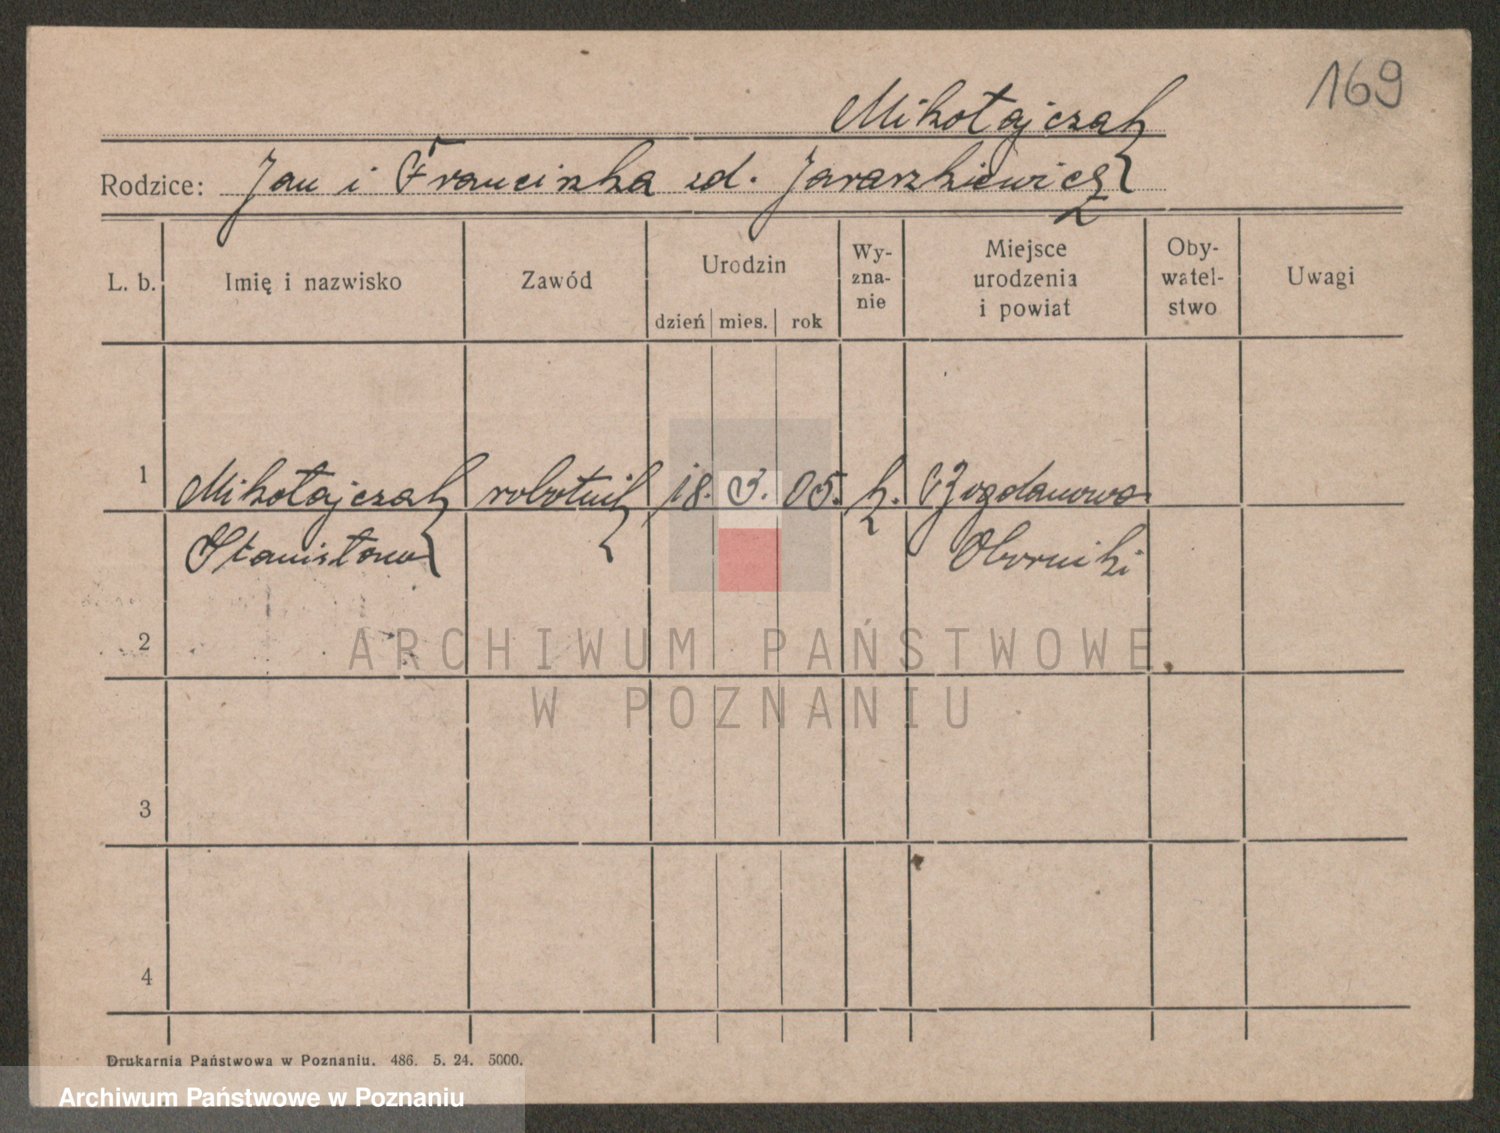 169
Mikołajczak
Rodzice: Jan i Franciszka zd. Jaraszkiewicz
L. b. Imię i nazwisko Zawód Urodzin dzień mies. rok Wy-zna-nie Miejsce urodzenia i powiat Oby-watel-stwo Uwagi
1 Mikołajczak robotnik 18. 3. 05. k. Bogdanowo
Stanisław Oborniki
2
ARCHIWUM PAŃSTWOWE
W POZNANIU
3
4
Drukarnia Państwowa w Poznaniu. 486. 5. 24. 5000.
Archiwum Państwowe w Poznaniu